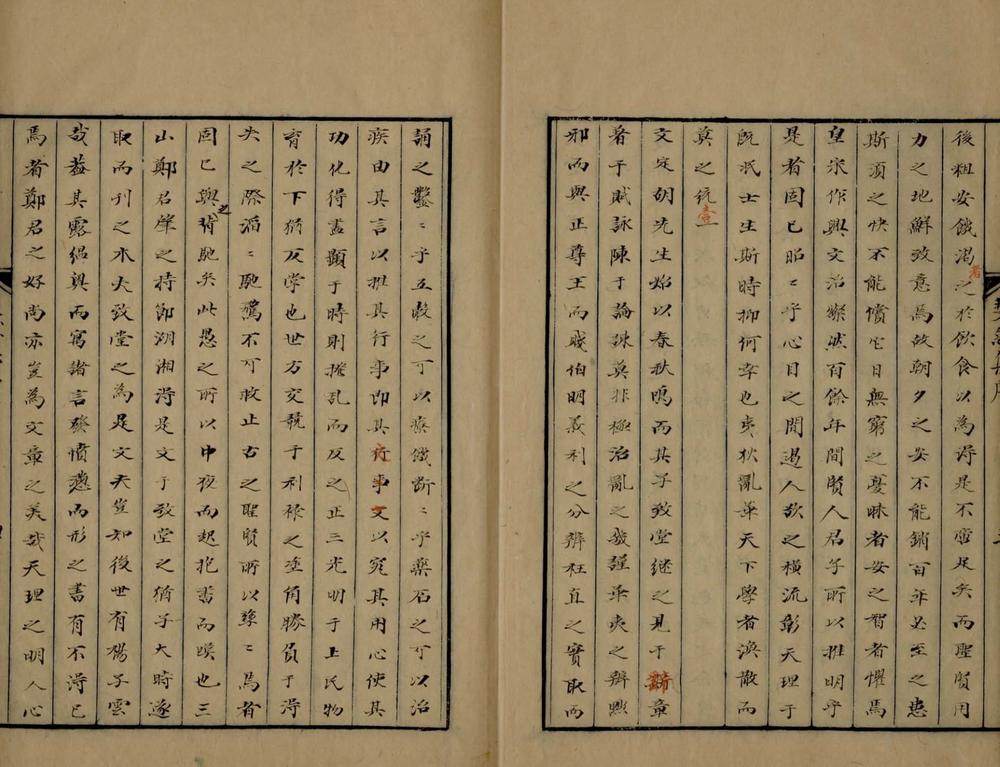 後粗安餓渴者之於飲食以為得是不啻足矣而聖賢用
力之地鮮致意焉故朝夕之安不能銷百年必至之患
斯須之快不能償它日無窮之憂昧者安之智者懼焉
皇宋作興文治燦然百餘年間賢人君子所以推明乎
是者固已昭〻乎心目之間遏人欲之橫流彰天理于
既泯士生斯時抑何幸也夷狄亂華天下學者渙散而
莫之統壹
文定胡先生始以春秋鳴而其子致堂繼之見于辭章
者于賦詠陳于論疏莫非極治亂之幾謹華夷之辨黜
邪而與正尊王而賤伯明義利之分辨枉直之實取而
誦之鑿〻乎五穀之可以療餓斷〻乎藥石之可以治
疾由其言以推其行事即其行事文以究其用心使其
功化得盡顯于時則撥亂而反之正三光明于上民物
育於下猶反掌也世方交競于利祿之塗角勝負于得
失之際滔〻馳騖不可救止古之聖賢所以〻焉者
固已與之背馳矣此愚之所以中夜而起抱書而嘆也三
山鄭君肇之持節湖湘得是文于致堂之猶子大時遂
取而刊之木夫致堂之為是文夫豈知後世有楊子雲
哉蓋其露縕奧而寫諸言發憤懣而形之書有不得已
焉者鄭君之好尚亦豈為文章之美哉天理之明人心